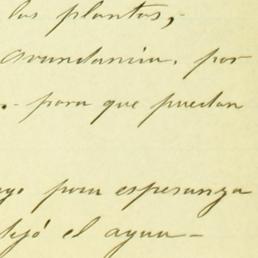 las plantas,
avundancia, por
. para que puedan
para esperanza
dejó el agua